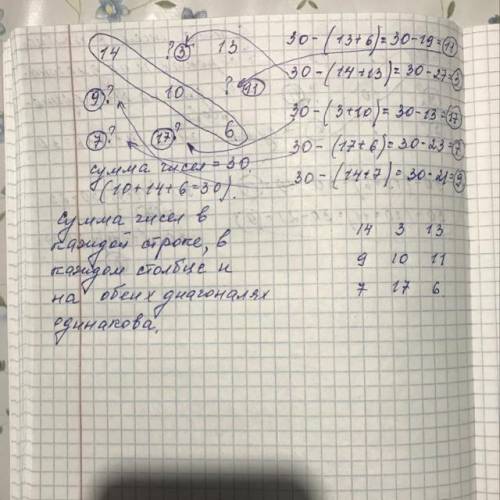 14 ? 3 13
9 ? 10 ? 11
7 ? 17 ? 6
сумма чисел = 30.
(10+14+6=30).
30-(13+6)=30-19=11
30-(14+13)=30-27=3
30-(3+10)=30-13=17
30-(17+6)=30-23=7
30-(14+7)=30-21=9
сумма чисел в
каждой строке, в
каждом столбце и
на обеих диагоналях
одинакова.
14 3 13
9 10 11
7 17 6